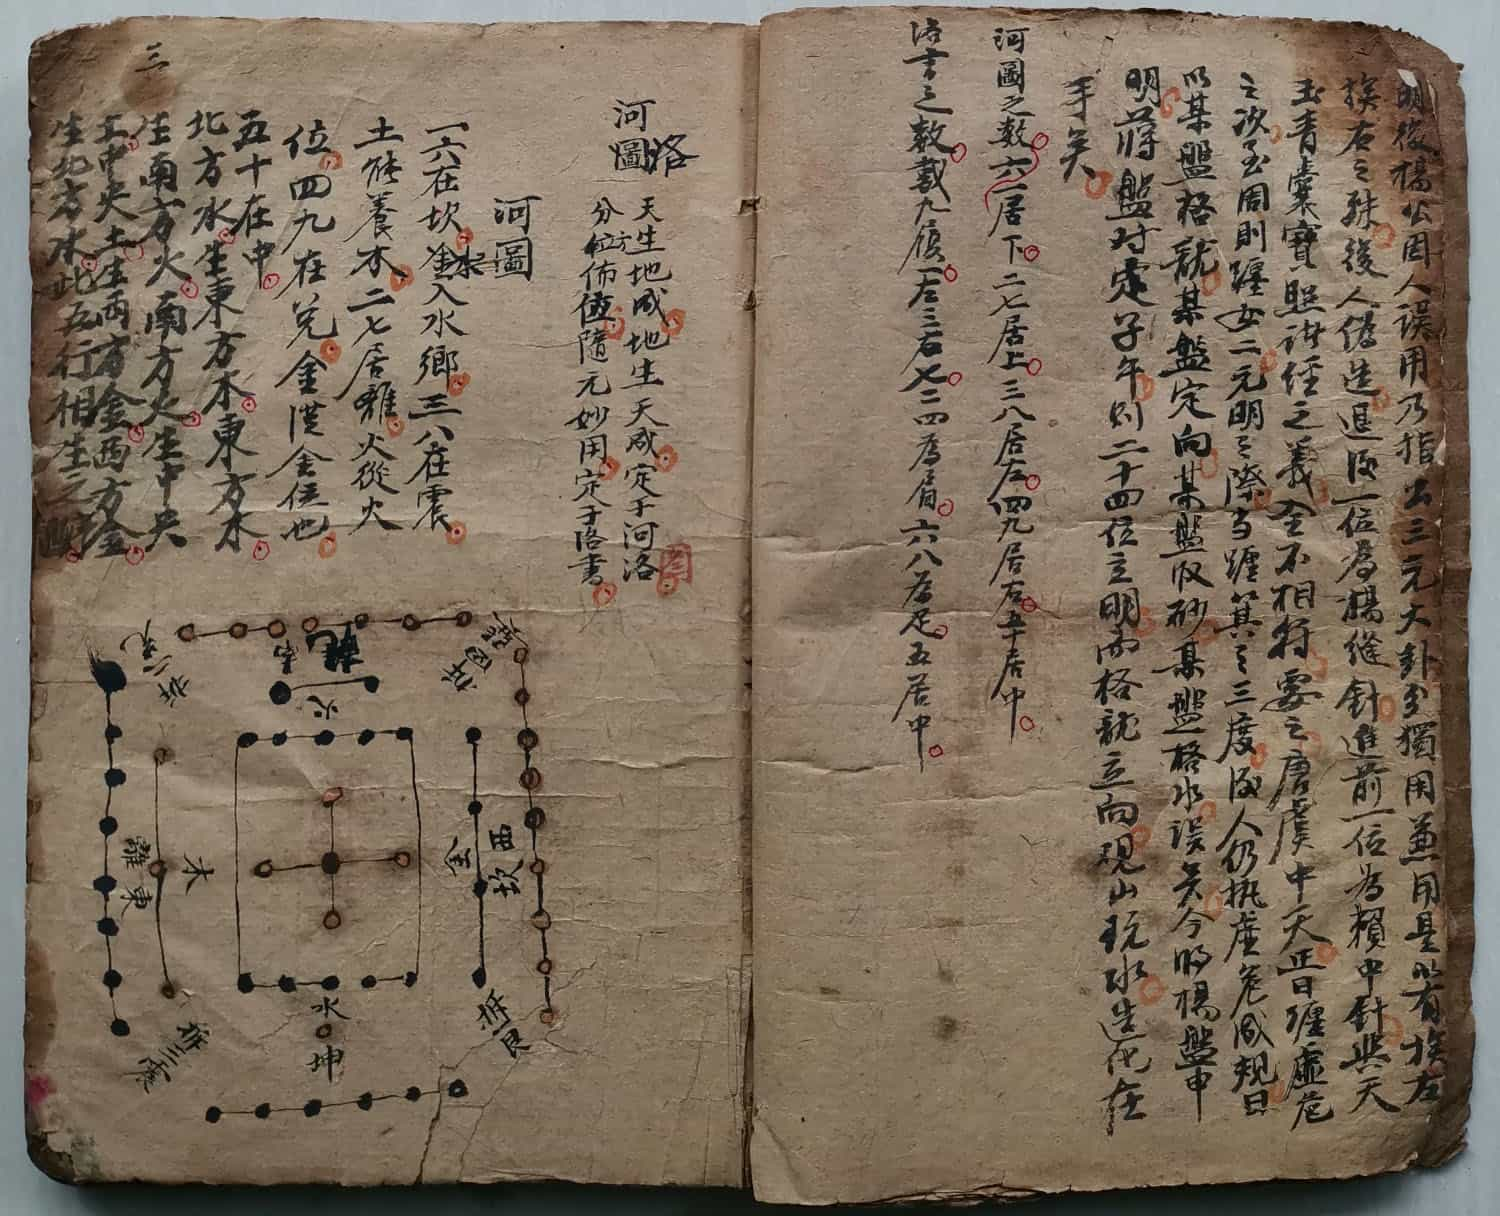 明後楊公因人誤用乃指出三元大卦分獨用兼用是以有挨左
挨右之殊後人偽造退後一位為楊縫針進前一位為賴中針與天
玉青囊寶照諸經之義全不相符要之唐虞中天正日纏虛危
之次至周則纏女二元明之際當纏箕之三度後人仍執虛危成規日
以某盤格龍某盤定向某盤收砂某盤格水誤矣今將楊盤申
明蔣盤对定子午則二十四位立明而格龍立向观山玩水造化在
手矣
河圖之数六一居下二七居上三八居左四九居右五十居中
洛书之数戴九履一左三右七二四為肩六八為足五居中
河洛
圖
天生地成地生天成定于河洛
分位方佈位隨元妙用定于洛書
河圖
一六在坎金水入水鄉三八在震
土能養木二七居離火從火
位四九在兌金從金位也
五十在中
北方水生東方木東方木
生南方火南方火生中央
土中央土生西方金西方金
生北方水此五行相生之
三
乾
南
火
西
坎
金
木
東
離
水
坤